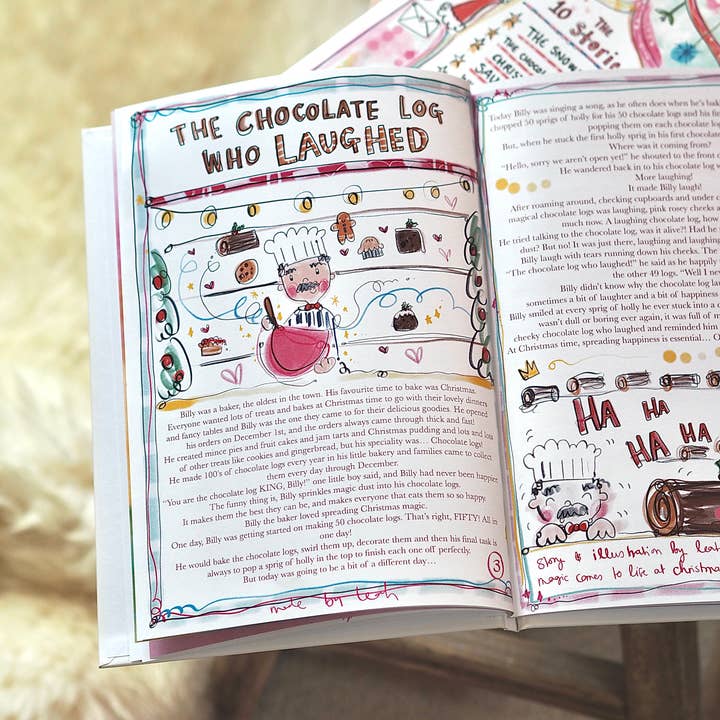 THE CHOCOLATE LOG
WHO LAUGHED
Billy was a baker, the oldest in the town. His favourite time to bake was Christmas.
Everyone wanted lots of treats and bakes at Christmas time to go with their lovely dinners
and fancy tables and Billy was the one they came to for their delicious goodies. He opened
his orders on December 1st, and the orders always came through thick and fast!
He created mince pies and fruit cakes and jam tarts and Christmas pudding and lots and lots
of other treats like cookies and gingerbread, but his speciality was... Chocolate logs!
He made 100's of chocolate logs every year in his little bakery and families came to collect
them every day through December.
"You are the chocolate log KING, Billy!" one little boy said, and Billy had never been happier.
The funny thing is, Billy sprinkles magic dust into his chocolate logs.
It makes them the best they can be, and makes everyone that eats them so so happy.
Billy the baker loved spreading Christmas magic.
One day, Billy was getting started on making 50 chocolate logs. That's right, FIFTY! All in
one day!
He would bake the chocolate logs, swirl them up, decorate them and then his final task is
always to pop a sprig of holly in the top to finish each one off perfectly.
But today was going to be a bit of a different day...
3
made by Leah
THE
10 Stories
THE SNOW
THE CHOCO
CHRIS
SAV
Today Billy was singing a song, as he often does when he's bak
chopped 50 sprigs of holly for his 50 chocolate logs and his fin
popping them on each chocolate log
But, when he stuck the first holly sprig in his first chocolate
Where was it coming from?
"Hello, sorry we aren't open yet!" he shouted to the front o
He wandered back in to his chocolate log w
More laughing!
It made Billy laugh!
After roaming around, checking cupboards and under c
magical chocolate logs was laughing, pink rosey cheeks a
much now. A laughing chocolate log, how
He tried talking to the chocolate log, was it alive?! Had he
dust? But no! It was just there, laughing and laughing
Billy laugh with tears running down his cheeks. The
"The chocolate log who laughed!" he said as he happily
the other 49 logs. "Well I ne
Billy didn't know why the chocolate log lau
sometimes a bit of laughter and a bit of happiness
Billy smiled at every sprig of holly he ever stuck into a c
wasn't dull or boring ever again, it was full of m
cheeky chocolate log who laughed and reminded him
At Christmas time, spreading happiness is essential... O
HA HA
HA HA
Story & illustration by Leah
magic comes to life at christma